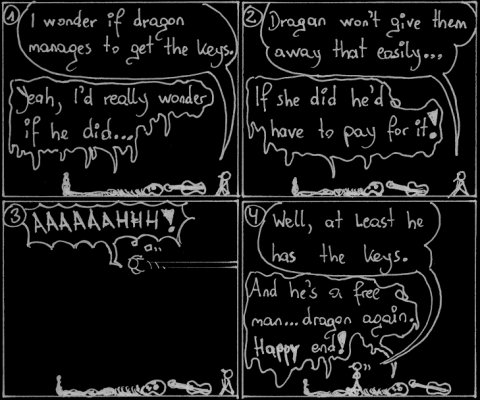 1
I wonder if dragon
manages to get the keys.
Yeah, I'd really wonder
if he did...
2
Dragan won't give them
away that easily...
If she did he'd
have to pay for it!
3
AAAAAAHHH!
4
Well, at least he
has the keys.
And he's a free
man...dragon again.
Happy end!